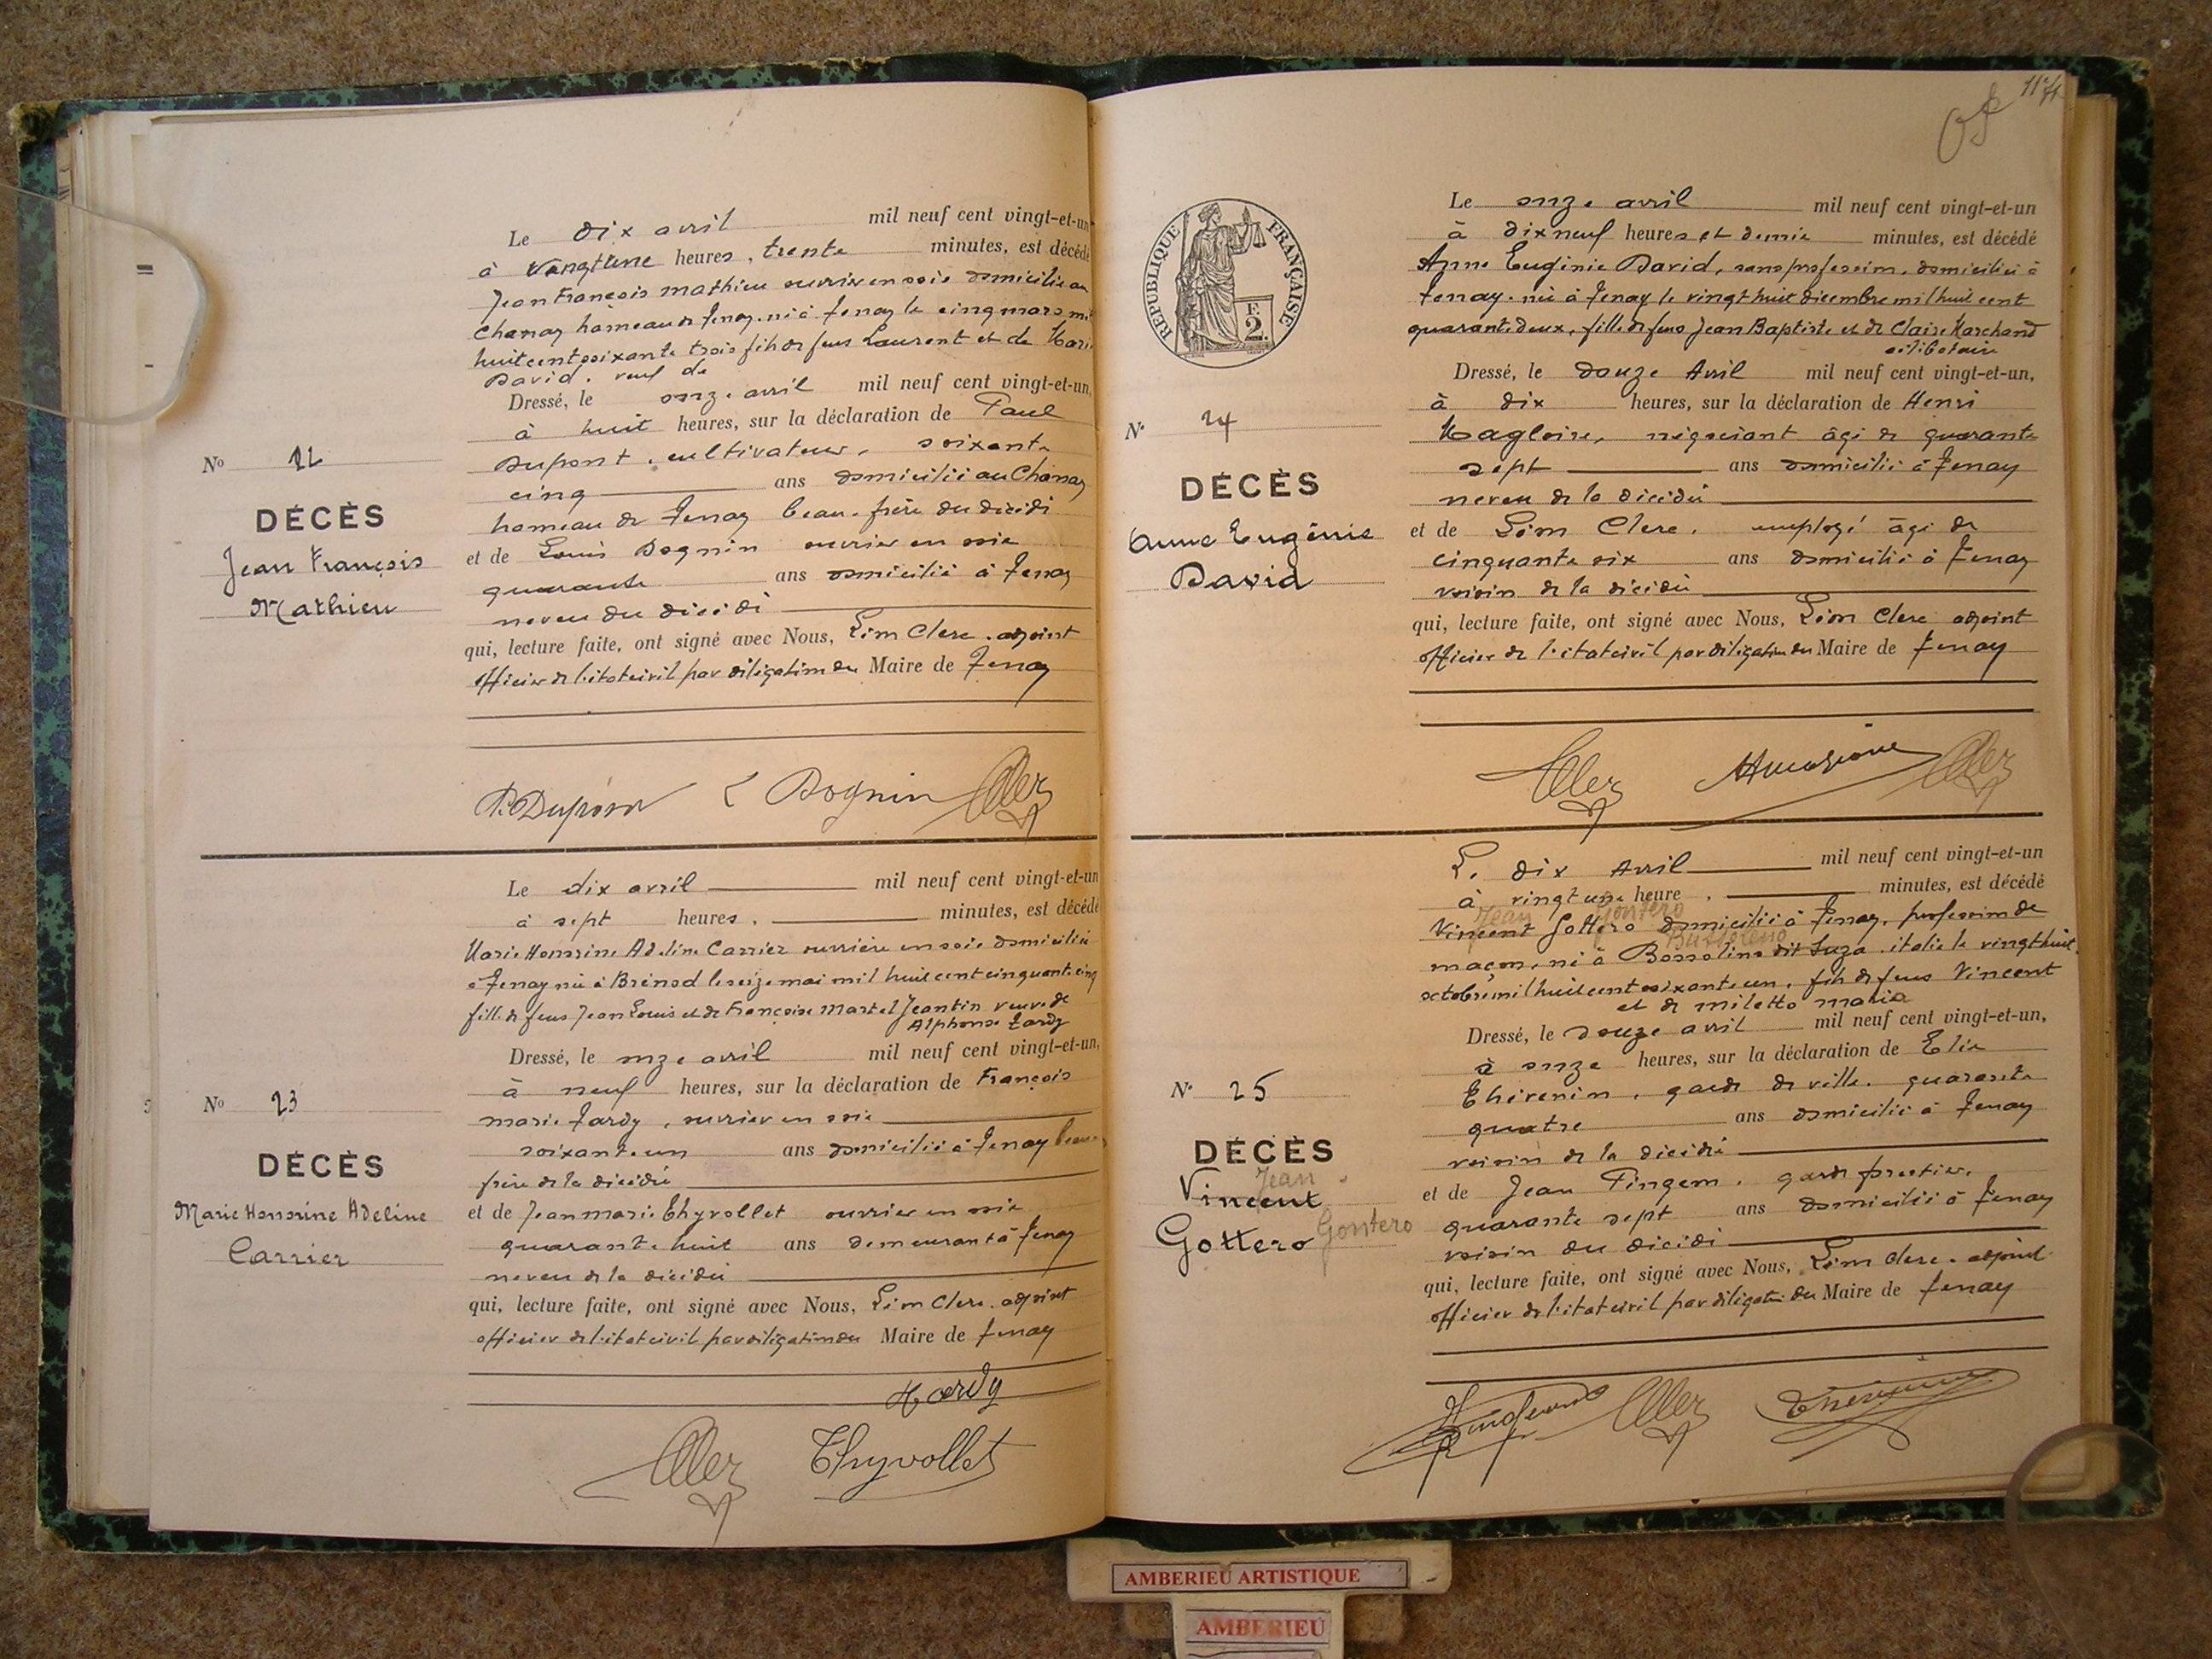 Le dix avril mil neuf cent vingt-et-un
à vingt une heures, trente minutes, est décédé
Jean François Mathieu ouvrier en soie domicilié au
Chanay hameau de Tenay. né à Tenay le cinq mars mil
huit cent soixante trois fils de feus Laurent et de Marie
David. veuf de
Dressé, le onze avril mil neuf cent vingt-et-un,
à huit heures, sur la déclaration de Paul
Dupont, cultivateur, soixante
cinq ans domicilié au Chanay
hameau de Tenay beau-frère du décédé
et de Louis Dognin ouvrier en soie
quarante ans domicilié à Tenay
neveu du décédé
qui, lecture faite, ont signé avec Nous, Léon Clerc. adjoint
officier de l'état civil par délégation du Maire de Tenay
No 22
DÉCÈS
Jean François
Mathieu
P. Dupont L Dognin
Le dix avril mil neuf cent vingt-et-un
à sept heures, minutes, est décédé
Marie Honorine Adeline Carrier ouvrière en soie domiciliée
à Tenay née à Brénod le seize mai mil huit cent cinquante cinq
fille de feus Jean Louis et de Françoise Martel Jeantin veuve de
Alphonse Tardy
Dressé, le onze avril mil neuf cent vingt-et-un,
à neuf heures, sur la déclaration de François
marie Tardy, ouvrier en soie
soixante un ans domicilié à Tenay beau-
frère de la décédée
et de Jean marie Thyvollet ouvrier en soie
quarante huit ans demeurant à Tenay
neveu de la décédée
qui, lecture faite, ont signé avec Nous, Léon Clerc. adjoint
officier de l'état civil par délégation du Maire de Tenay
No 23
DÉCÈS
Marie Honorine Adeline
Carrier
Tardy
Thyvollet
11
RÉPUBLIQUE FRANÇAISE
F. 2.
Le onze avril mil neuf cent vingt-et-un
à dix neuf heures et demie minutes, est décédé
Anne Eugénie David, sans profession, domiciliée à
Tenay. née à Tenay le vingt huit décembre mil huit cent
quarante deux, fille de feus Jean Baptiste et de Claire Marchand
célibataire
Dressé, le douze Avril mil neuf cent vingt-et-un,
à dix heures, sur la déclaration de Henri
Magloire, négociant âgé de quarante
sept ans domicilié à Tenay
neveu de la décédée
et de Léon Clerc, employé âgé de
cinquante six ans domicilié à Tenay
voisin de la décédée
qui, lecture faite, ont signé avec Nous, Léon Clerc adjoint
officier de l'état civil par délégation du Maire de Tenay
No 24
DÉCÈS
Anne Eugénie
David
Le dix Avril mil neuf cent vingt-et-un
à vingt une heure, minutes, est décédé
Jean Gontero
Vincent Gottero domicilié à Tenay, profession de
Bussoleno
maçon, né à Bossolino dit Suza, italie le vingt huit
octobre mil huit cent soixante un, fils de feus Vincent
et de miletto maria
Dressé, le douze avril mil neuf cent vingt-et-un,
à onze heures, sur la déclaration de Elie
Thévenin, garde de ville, quarante
quatre ans domicilié à Tenay
voisin de la décédé
et de Jean Pingeon, garde forestier,
quarante sept ans domicilié à Tenay
voisin du décédé
qui, lecture faite, ont signé avec Nous, Léon Clerc. adjoint
officier de l'état civil par délégation du Maire de Tenay
No 25
DÉCÈS
Jean
Vincent
Gottero Gontero
Thévenin
AMBERIEU ARTISTIQUE
AMBERIEU